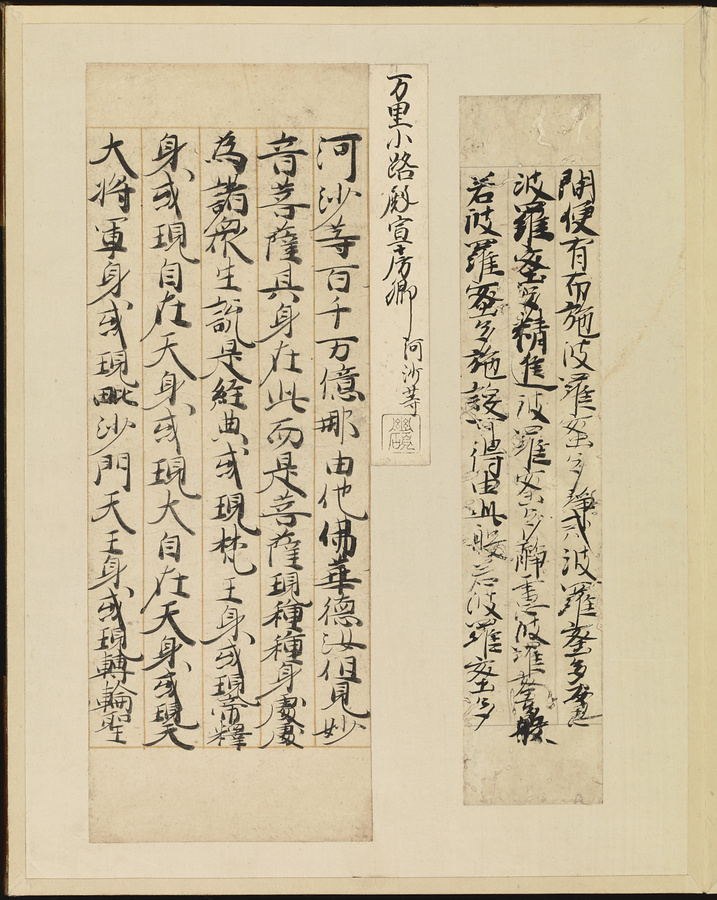 間便有布施波羅蜜多静戒波羅蜜多安忍
波羅蜜多精進波羅蜜多静慮波羅蜜多般
若波羅蜜多施設可得由此般若波羅蜜多
万里小路殿宣房卿 河沙等
河沙等百千万億那由他佛華德汝但見妙
音菩薩其身在此而是菩薩現種種身處處
為諸衆生説是經典或現梵王身或現帝釋
身或現自在天身或現大自在天身或現天
大将軍身或現毗沙門天王身或現轉輪聖